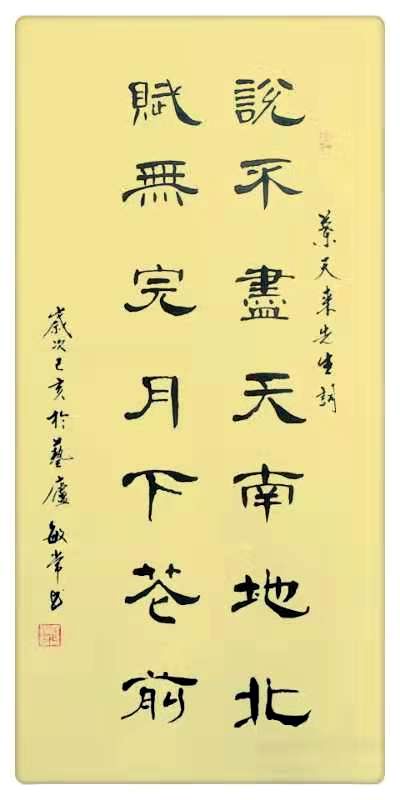 葉天来先生詞
説不盡天南地北
賦無完月下花前
歲次己亥於藝廬敏常书